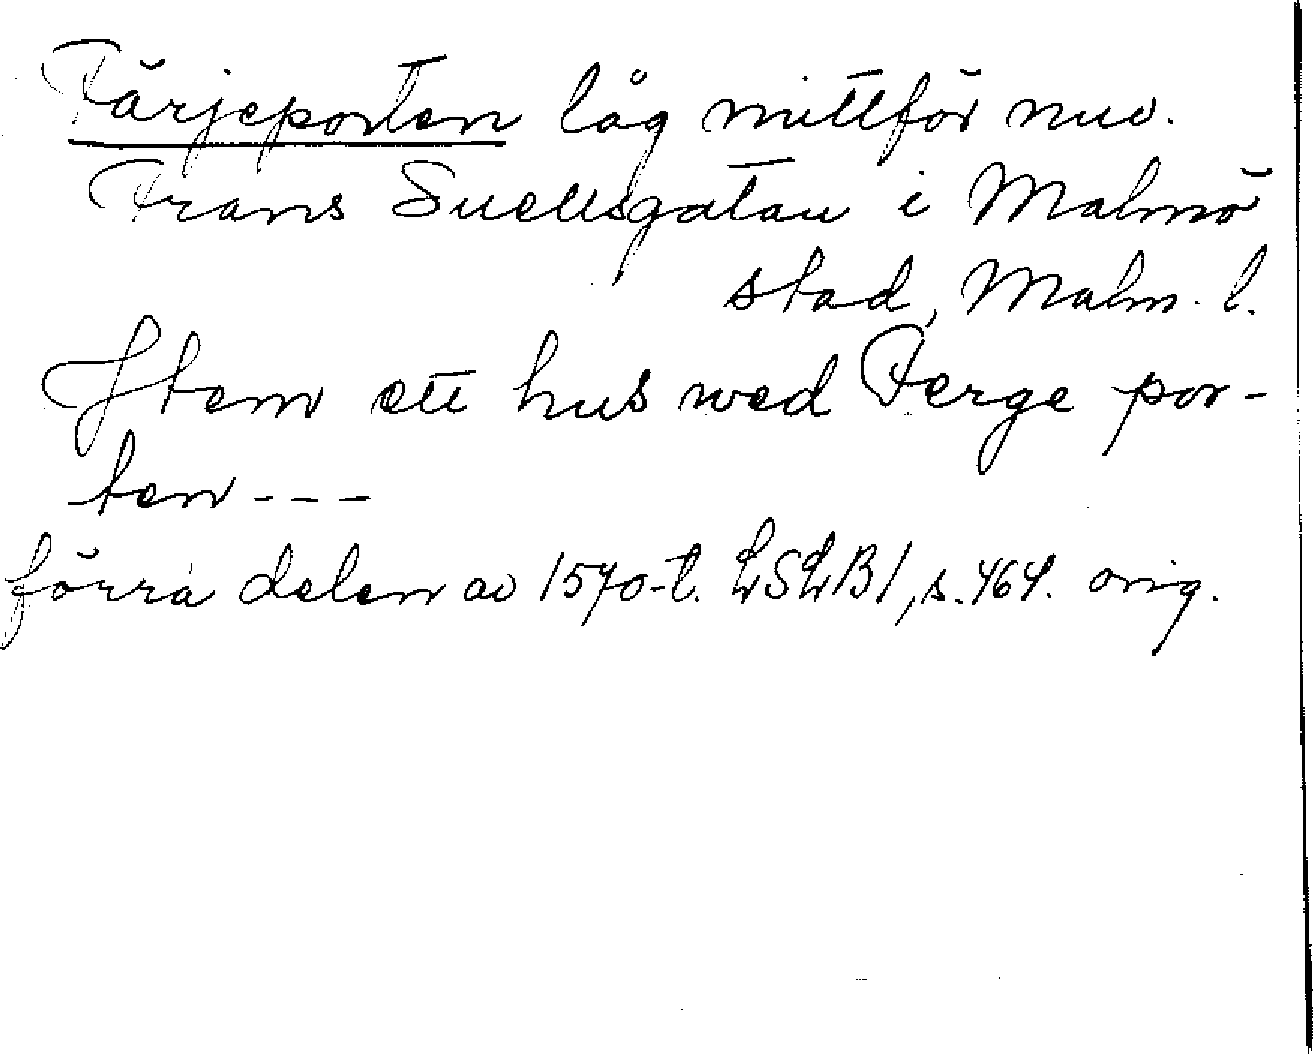 Färjeporten låg mittför nuv.
Frans Suellsgatan i Malmö
stad, Malm. l.
Item ett hus wed Ferge por-
ten---
förra delen av 1570-t. LSLB1, s. 464. orig.